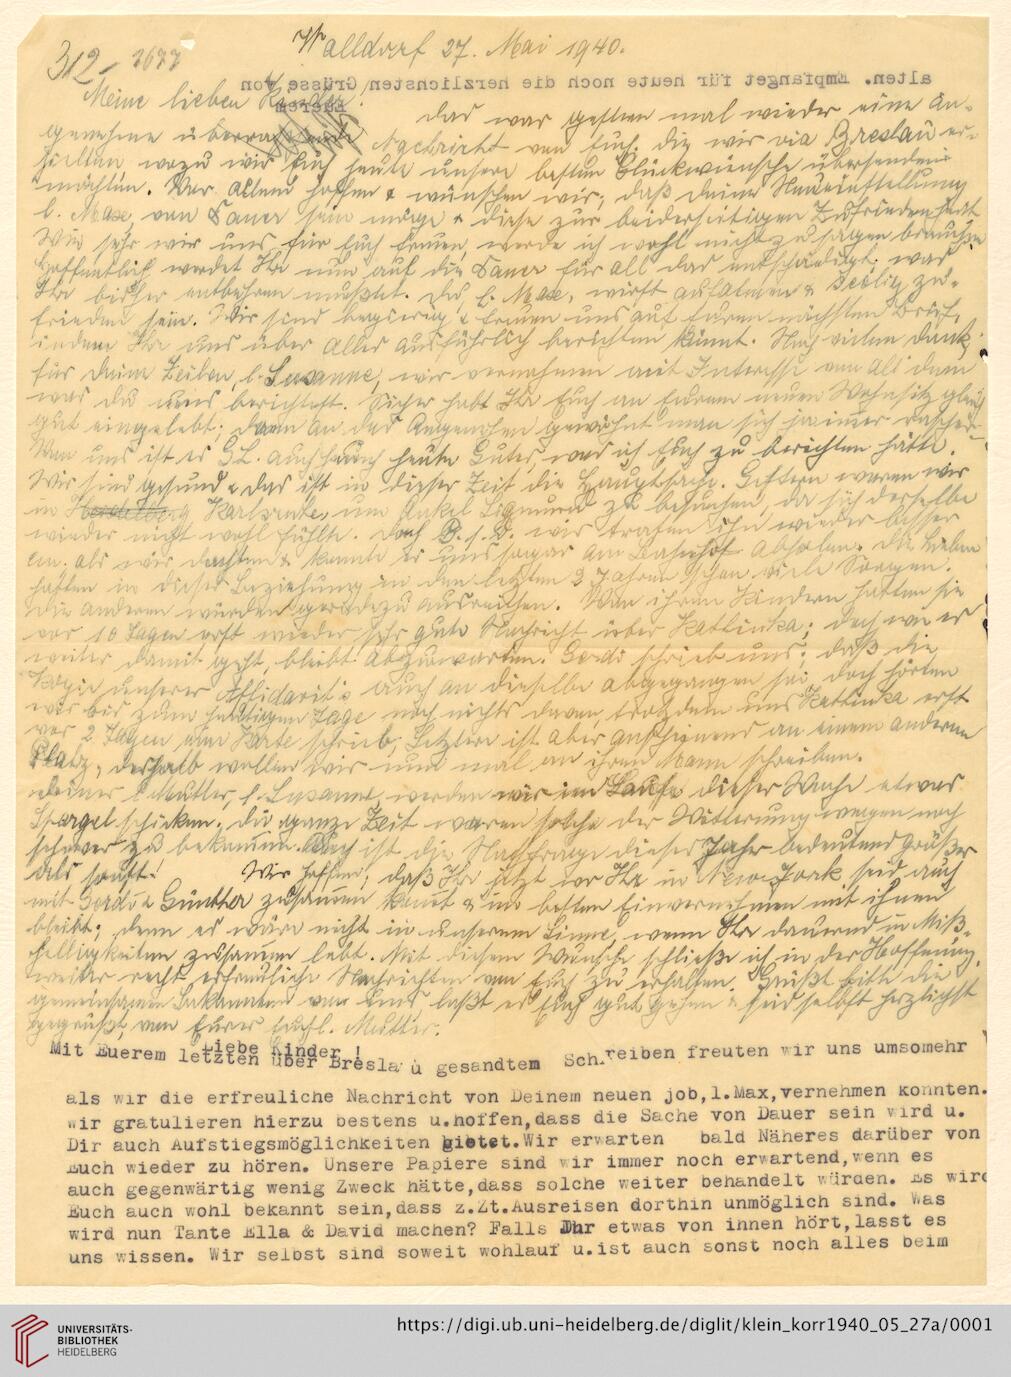 312,- 2677
Walldorf 27. Mai 1940.
alten. Empfanget für heute noch die herzlichsten Grüsse von
Euerem
Meine lieben Kinder!
Das war gestern mal wieder eine an-
genehme überraschende Nachricht von Euch, die wir via Breslau er-
hielten wozu wir Euch heute unsere besten Glückwünsche übersenden
möchten. Vor allem hoffen & wünschen wir, daß deine Neueinstellung
l. Max, von Dauer sein möge & diese zur beiderseitigen Zufriedenheit
Wie sehr wir uns für Euch freuen, werde ich wohl nicht zu sagen brauchen
Hoffentlich werdet Ihr nun auf die Dauer für all das entschädigt, was
Ihr bisher entbehren mußtet. Du, l. Max, wirst aufatmen & seelig zu-
frieden sein. Wir sind begierig & freuen uns auf Euren nächsten Brief,
indem Ihr uns über alles ausführlich berichten könnt. Noch vielen Dank
für deine Zeilen, l. Susanne, wir vernahmen mit Interesse von all dem
was du uns berichtest. Sicher habt Ihr Euch an Eurem neuen Wohnsitz gleich
gut eingelebt; denn an das Angenehme gewöhnt man sich ja immer rascher.
Von uns ist es G.L. auch heute Gutes, was ich Euch zu berichten hätte.
Wir sind gesund & das ist in dieser Zeit die Hauptsache. Gestern waren wir
in Karlsruhe, um Onkel Sigmund zu besuchen, da sich derselbe
wieder nicht wohl fühlte. Doch G.s.D. wir trafen ihn wieder besser
an. als wir dachten & konnte er uns sogar am Bahnhof abholen. Die Lieben
hatten in dieser Beziehung in den letzten 2 Jahren schon viele Sorgen.
Die anderen würden geradezu ausreichen. Von ihren Kindern hatten sie
vor 10 Tagen erst wieder sehr gute Nachricht über Kathinka; doch wie es
weiter damit geht, bleibt abzuwarten. Gerdi schrieb uns, daß die
Kopie unserer Affidavit's auch an dieselbe abgegangen sei, doch hörten
wir bis zum heutigen Tage noch nichts davon, trotzdem uns Kathinka erst
vor 2 Tagen eine Karte schrieb, Letztere ist aber anscheinend an einem anderen
Platz, deshalb wollen wir nun mal an ihren Mann schreiben.
Deiner l. Mutter, l. Susanne, werden wir im Laufe dieser Woche etwas
Spargel schicken. Die ganze Zeit waren solche der Witterung wegen noch
schwer zu bekommen. Auch ist die Nachfrage dieses Jahr bedeutend größer
als sonst! Wir hoffen, daß Ihr jetzt wo Ihr in New-York seid, auch
mit Gerdi & Günther zusammen kommt & im besten Einvernehmen mit ihnen
bleibt; denn es wäre nicht in unserem Sinne, wenn Ihr dauernd in Miß-
helligkeiten zusammen lebt. Mit diesem Wunsche schließe ich in der Hoffnung,
weiter recht erfreuliche Nachrichten von Euch zu erhalten. Grüßt bitte die
gemeinsamen Bekannten von uns, laßt es Euch gut gehen & seid selbst herzlichst
gegrüßt, von Eurer Euchl. Mutter.
Liebe Kinder !
Mit Euerem letzten über Breslau gesandtem Schreiben freuten wir uns umsomehr
als wir die erfreuliche Nachricht von Deinem neuen job,l.Max,vernehmen konnten.
wir gratulieren hierzu bestens u.hoffen,dass die Sache von Dauer sein wird u.
Dir auch Aufstiegsmöglichkeiten bietet.Wir erwarten bald Näheres darüber von
Euch wieder zu hören. Unsere Papiere sind wir immer noch erwartend,wenn es
auch gegenwärtig wenig Zweck hätte,dass solche weiter behandelt würden. Es wird
Euch auch wohl bekannt sein,dass z.Zt.Ausreisen dorthin unmöglich sind. Was
wird nun Tante Ella & David machen? Falls Ihr etwas von ihnen hört,lasst es
uns wissen. Wir selbst sind soweit wohlauf u.ist auch sonst noch alles beim
UNIVERSITÄTS-
BIBLIOTHEK
HEIDELBERG
https://digi.ub.uni-heidelberg.de/diglit/klein_korr1940_05_27a/0001